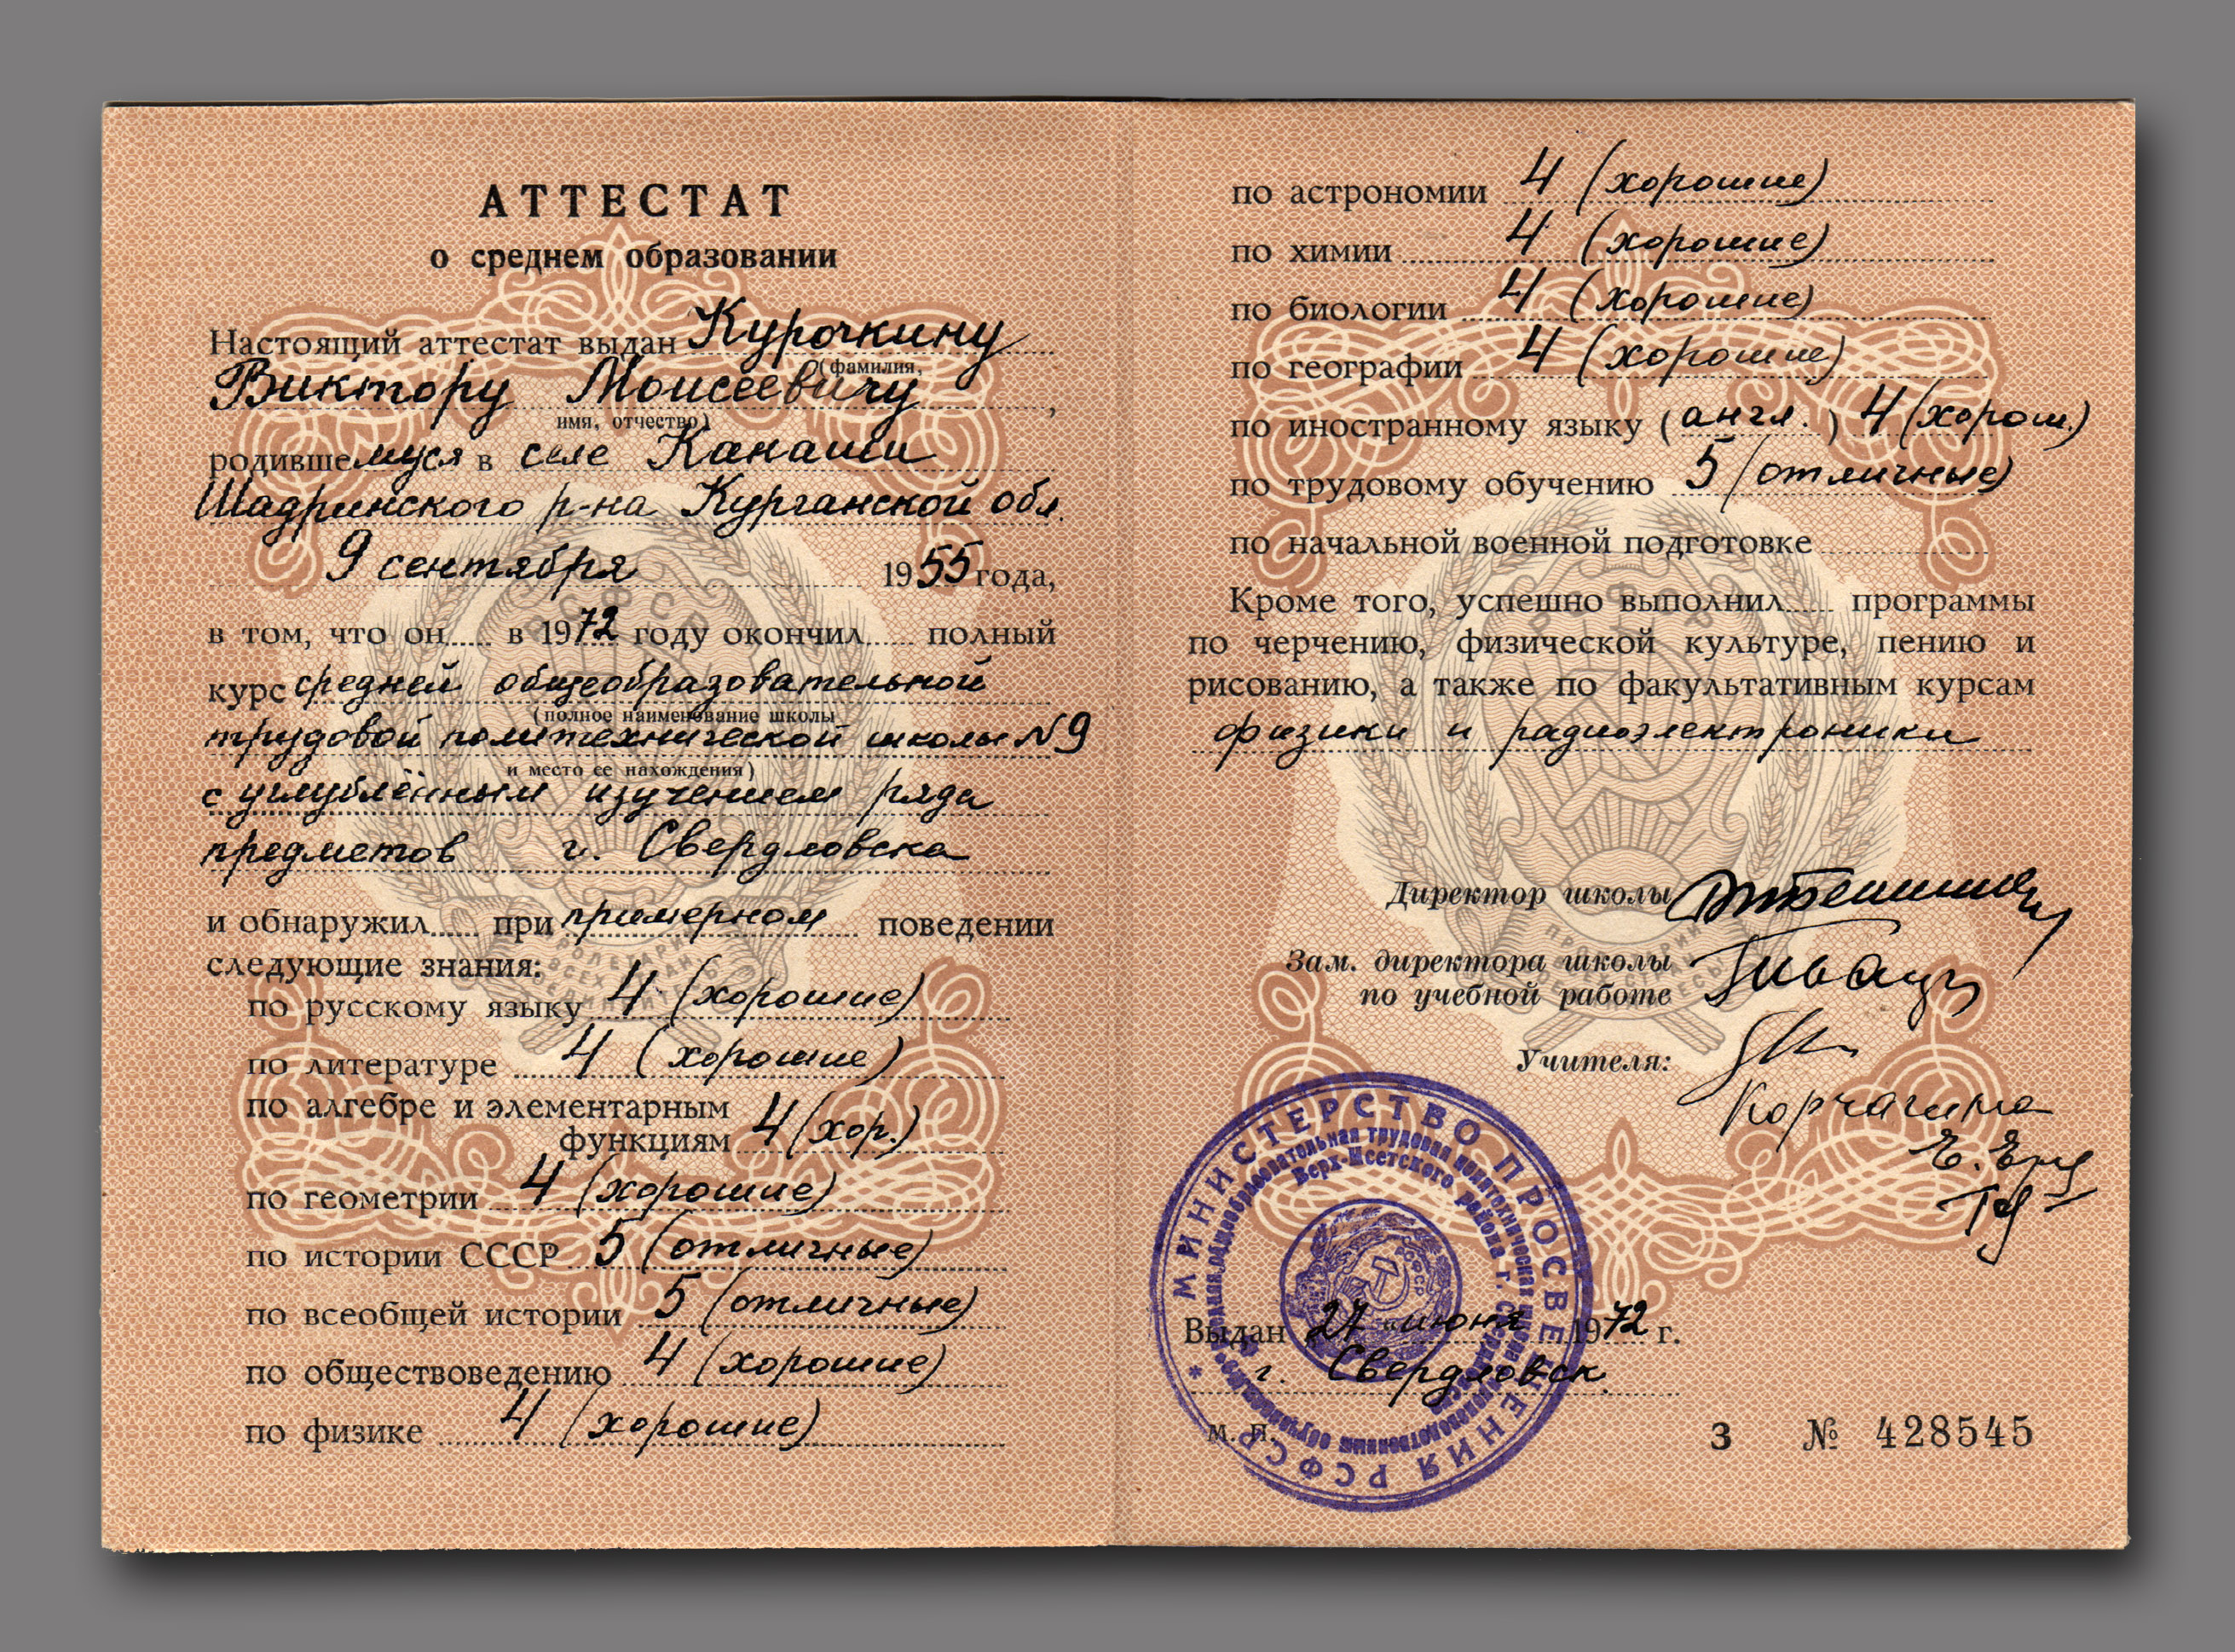 АТТЕСТАТ
о среднем образовании
Настоящий аттестат выдан Курочкину
(фамилия,
Виктору Моисеевичу,
имя, отчество)
родившемуся в селе Канаши
Шадринского р-на Курганской обл.
9 сентября 1955 года,
в том, что он в 1972 году окончил полный
курс средней общеобразовательной
(полное наименование школы
трудовой политехнической школы N 9
и место ее нахождения)
с углублённым изучением ряда
предметов г. Свердловска
и обнаружил при примерном поведении
следующие знания:
по русскому языку 4 (хорошие)
по литературе 4 (хорошие)
по алгебре и элементарным
функциям 4 (хор.)
по геометрии 4 (хорошие)
по истории СССР 5 (отличные)
по всеобщей истории 5 (отличные)
по обществоведению 4 (хорошие)
по физике 4 (хорошие)
по астрономии 4 (хорошие)
по химии 4 (хорошие)
по биологии 4 (хорошие)
по географии 4 (хорошие)
по иностранному языку (англ.) 4 (хорош.)
по трудовому обучению 5 (отличные)
по начальной военной подготовке
Кроме того, успешно выполнил программы
по черчению, физической культуре, пению и
рисованию, а также по факультативным курсам
физики и радиоэлектроники
Директор школы
Зам. директора школы
по учебной работе
Учителя:
Корчагина
МИНИСТЕРСТВО ПРОСВЕЩЕНИЯ РСФСР
общеобразовательная трудовая политехническая школа
Верх-Исетского района г. Свердловска
РСФСР
Выдан 27 июня 1972 г.
г. Свердловск.
м. п.
З № 428545